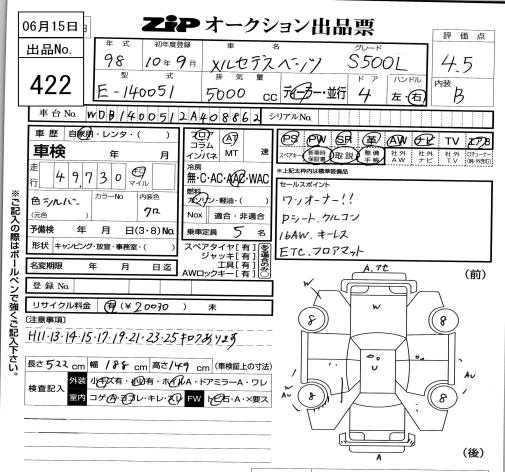 06月15日
出品No.
422
ZIP オークション出品票
年式 初年度登録 車名 グレード 評価点
98 10年9月 メルセデスベンツ S500L 4.5
型式 排気量 ドア ハンドル 内装
E-140051 5000 cc ディーラー・並行 4 左・右 B
車台No. WDB1400512A408862 シリアルNo.
車歴 自家用・レンタ・( )
車検 年 月
走行 49,730 キロ マイル
色 シルバー (元色) カラーNo. 内装色 クロ
予備検 年 月 日(3・8)No.
形状 キャンピング・放宣・事務室・( )
名変期限 年 月 日迄
登録No.
リサイクル料金 有(¥20030) 未
フロア コラム インパネ AT MT 速
冷房 無・C・AC・AAC・WAC
燃料 ガソリン・軽油・( )
Nox 適合・非適合
乗車定員 5 名
スペアタイヤ[有]
ジャッキ[有]
工具[有]
AWロックキー[有]
PS PW SR 革 AW ナビ TV エアB
スペアキー 新車時保証書 取説 整備手帳 社外AW 社外ナビ 社外TV
※上記太枠内は標準装備品
セールスポイント
ワンオーナー!!
Pシート クルコン
16AW. キーレス
ETC. フロアマット
[注意事項]
H11・13・14・15・17・19・21・23・25キロアリます
長さ522cm 幅188cm 高さ149cm (車検証上の寸法)
検査記入 外装 小キズ有・小凹有・ホイルA・ドアミラーA・ワレ
室内 コゲA・ヨゴレ・キレ・スレ FW トビ石・A・×要ス
※ご記入の際はボールペンで強くご記入下さい。
(前)
A.アセ
W
W
8
8
U
A
Au
Au
8
8
A
(後)